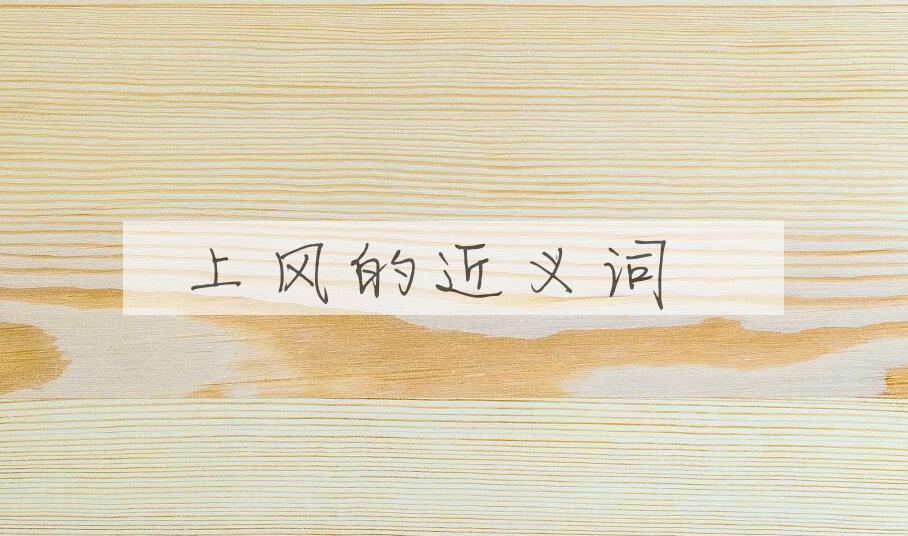 上风的近义词